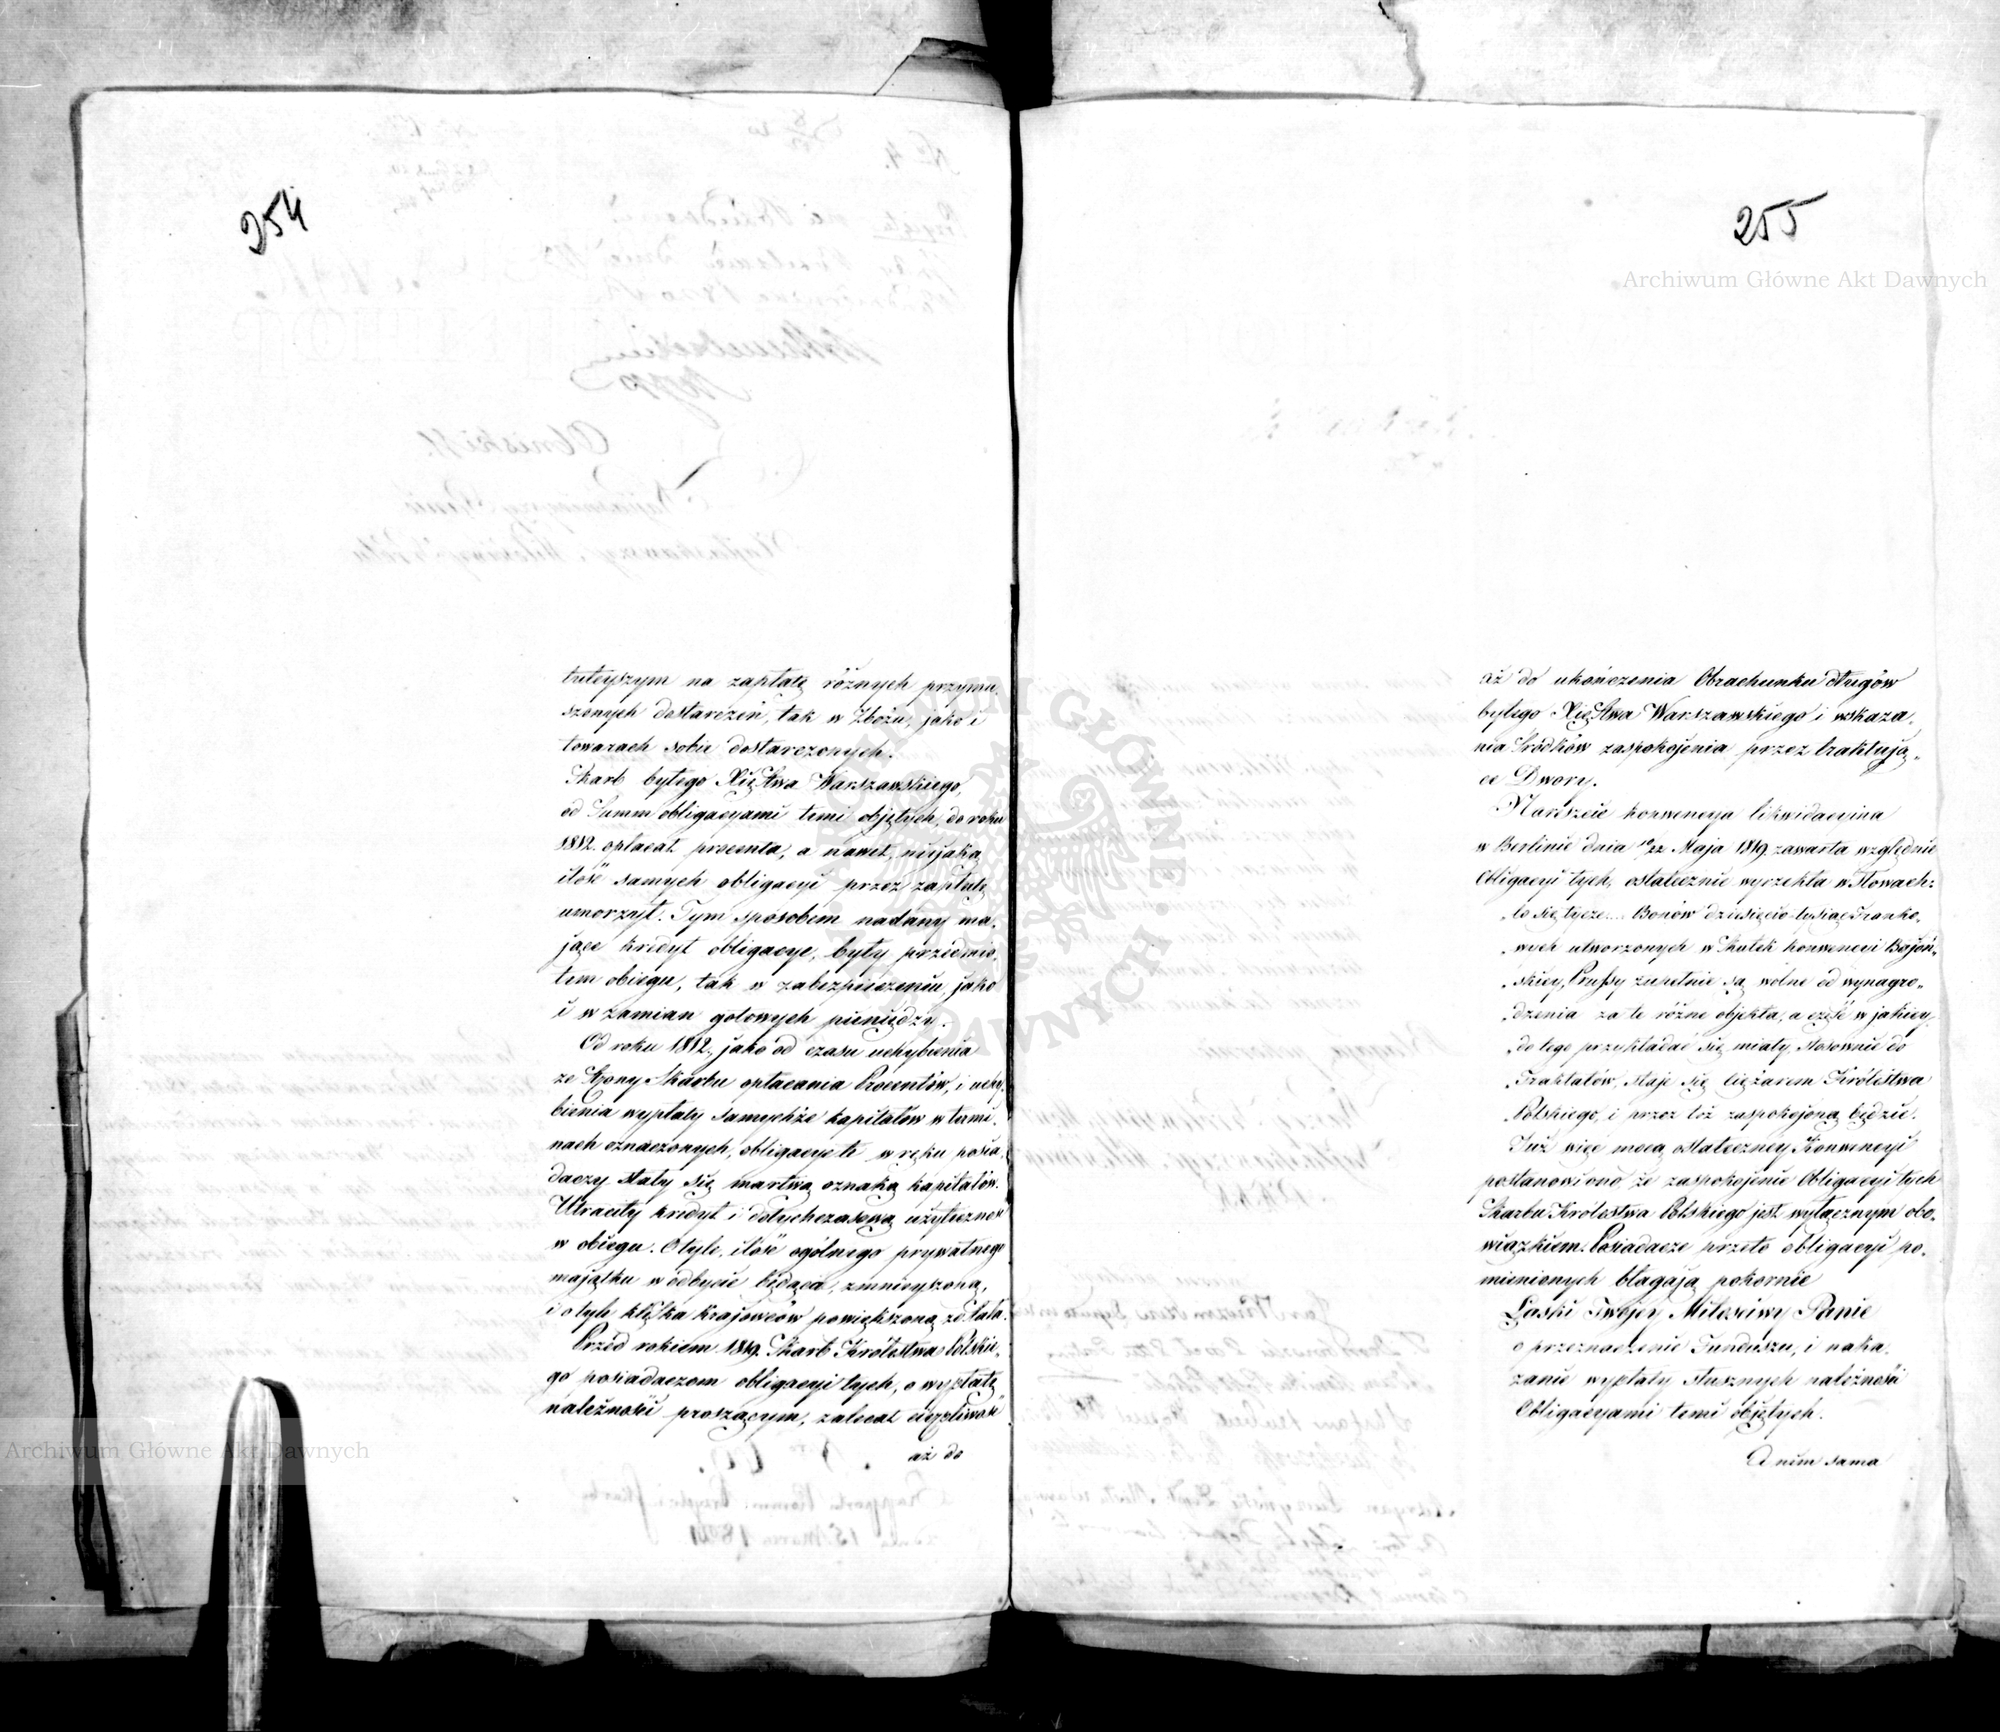 254
tuteyszym na zapłatę różnych przymu.
szonych dostarczeń, tak w Zbożu, jako i
towarach sobie dostarczonych.
Skarb byłego Xięstwa Warszawskiego,
od Summ obligacyami temi objętych, do roku
1812. opłacał procenta, a nawet, niejaką
ilość samych obligacyi przez zapłatę
umorzył. Tym sposobem nadany ma,
jące kredyt obligacye, były przedmio,
tem obiegu, tak w zabezpieczeniu, jako
i w zamian gotowych pieniędzy.
Od roku 1812., jako od czasu uchybienia
ze strony Skarbu opłacania Procentów, i uchy,
bienia wypłaty samychże kapitałów w termi,
nach oznaczonych, obligacye te w ręku posia,
daczy stały się martwą oznaką kapitałów.
Utraciły kredyt i dotychczasową użyteczność
w obiegu. O tyle, ilość ogólnego prywatnego
majątku w odbycie będąca, zmnieyszoną,
i o tych klęska krajowców powiększoną została.
Przed rokiem 1819. Skarb Królestwa Polskie,
go posiadaczom obligacyi tych, o wypłatę
należności proszącym, zalecał cierpliwość
aż do
255
Archiwum Główne Akt Dawnych
aż do ukończenia Obrachunku długów
byłego Xięstwa Warszawskiego i wskaza,
nia Śródków zaspokojenia przez traktują,
ce Dwory.
Nareszcie konwencya likwidacyina
w Berlinie dnia 10/22 Maja 1819. zawarta względnie
Obligacyi tych, ostatecznie wyrzekła w Słowach:
„Co się tycze.... Bonów dziesięcio-tysiąc Franko,
„wych utworzonych w Skutek konwencyi Bajoń„
„skiey, Prussy zupełnie są wolne od wynagro„
„dzenia za te różne objekta, a część w jakiey,
„do tego przykładać się miały, stosownie do
„Traktatów, staje się ciężarem Królestwa
„Polskiego, i przez toż zaspokojoną będzie.
Już więc mocą ostateczney Konwencyi
postanowiono że zaspokojenie Obligacyi tych
Skarbu Królestwa Polskiego jest wyłącznym obo,
wiązkiem. Posiadacze przeto obligacyi po,
mienionych błagają pokornie
Łaski Twojey Miłościwy Panie
o przeznaczenie Funduszu, i naka,
zanie wypłaty słusznych należności
Obligacyami temi objętych.
A nim sama
Archiwum Główne Akt Dawnych